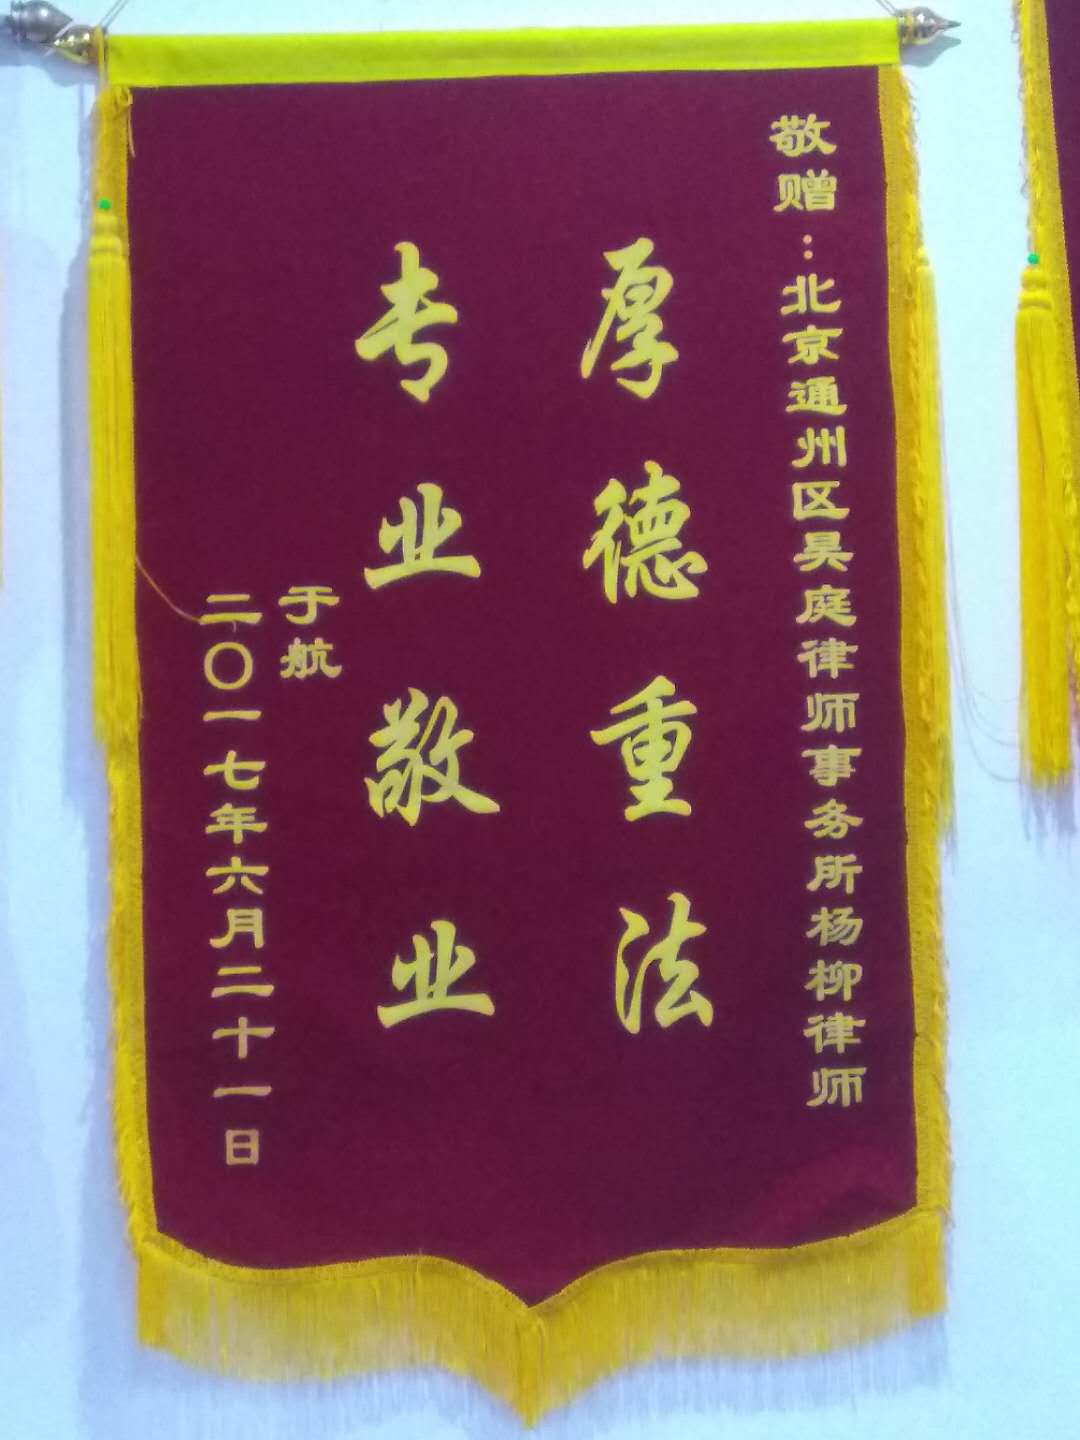 敬赠：北京通州区昊庭律师事务所杨柳律师
厚德重法
专业敬业
于航
二〇一七年六月二十一日